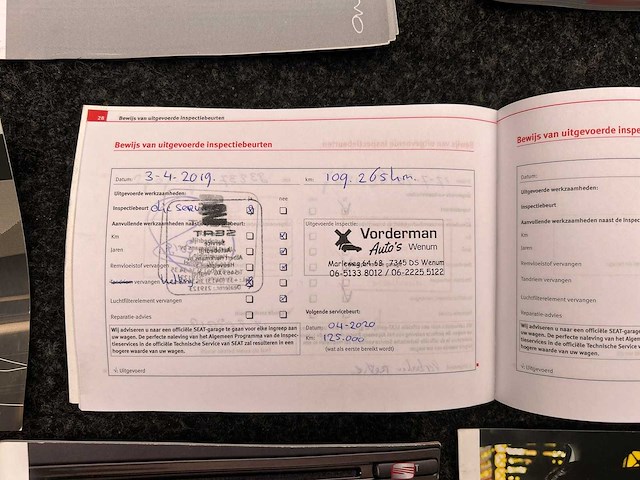 28 Bewijs van uitgevoerde inspectiebeurten
Bewijs van uitgevoerde inspectiebeurten
Datum: 3-4-2019.
km: 109.265km.
Uitgevoerde werkzaamheden:
ja nee
Inspectiebeurt
Aanvullende werkzaamheden
beurt:
Km
Jaren
Remvloeistof vervangen
vervangen
Luchtfilterelement vervangen
Reparatie-advies
Wij adviseren u naar een officiële SEAT-garage te gaan voor elke ingreep aan
uw wagen. De perfecte naleving van het Algemeen Programma van de Inspec-
tieservices in de officiële Technische Service van SEAT zal resulteren in een
hogere waarde van uw wagen.
v. Uitgevoerd
Uitgevoerde inspectie:
Vorderman
Auto's Wenum
Marleweg 64-68, 7345 DS Wenum
06-5133 8012 / 06-2225 5122
Volgende servicebeurt:
Datum: 04-2020
Km: 125.000
(wat als eerste bereikt wordt)
SEAT
Bewijs van uitgevoerde inspe
Datum:
Uitgevoerde werkzaamheden:
Inspectiebeurt
Aanvullende werkzaamheden naast de Inspe
Km
Jaren
Remvloeistof vervangen
Tandriem vervangen
Luchtfilterelement vervangen
Reparatie-advies
Wij adviseren u naar een officiële SEA
uw wagen. De perfecte naleving van he
tieservices in de officiële Technische Se
hogere waarde van uw wagen.
v. Uitgevoerd